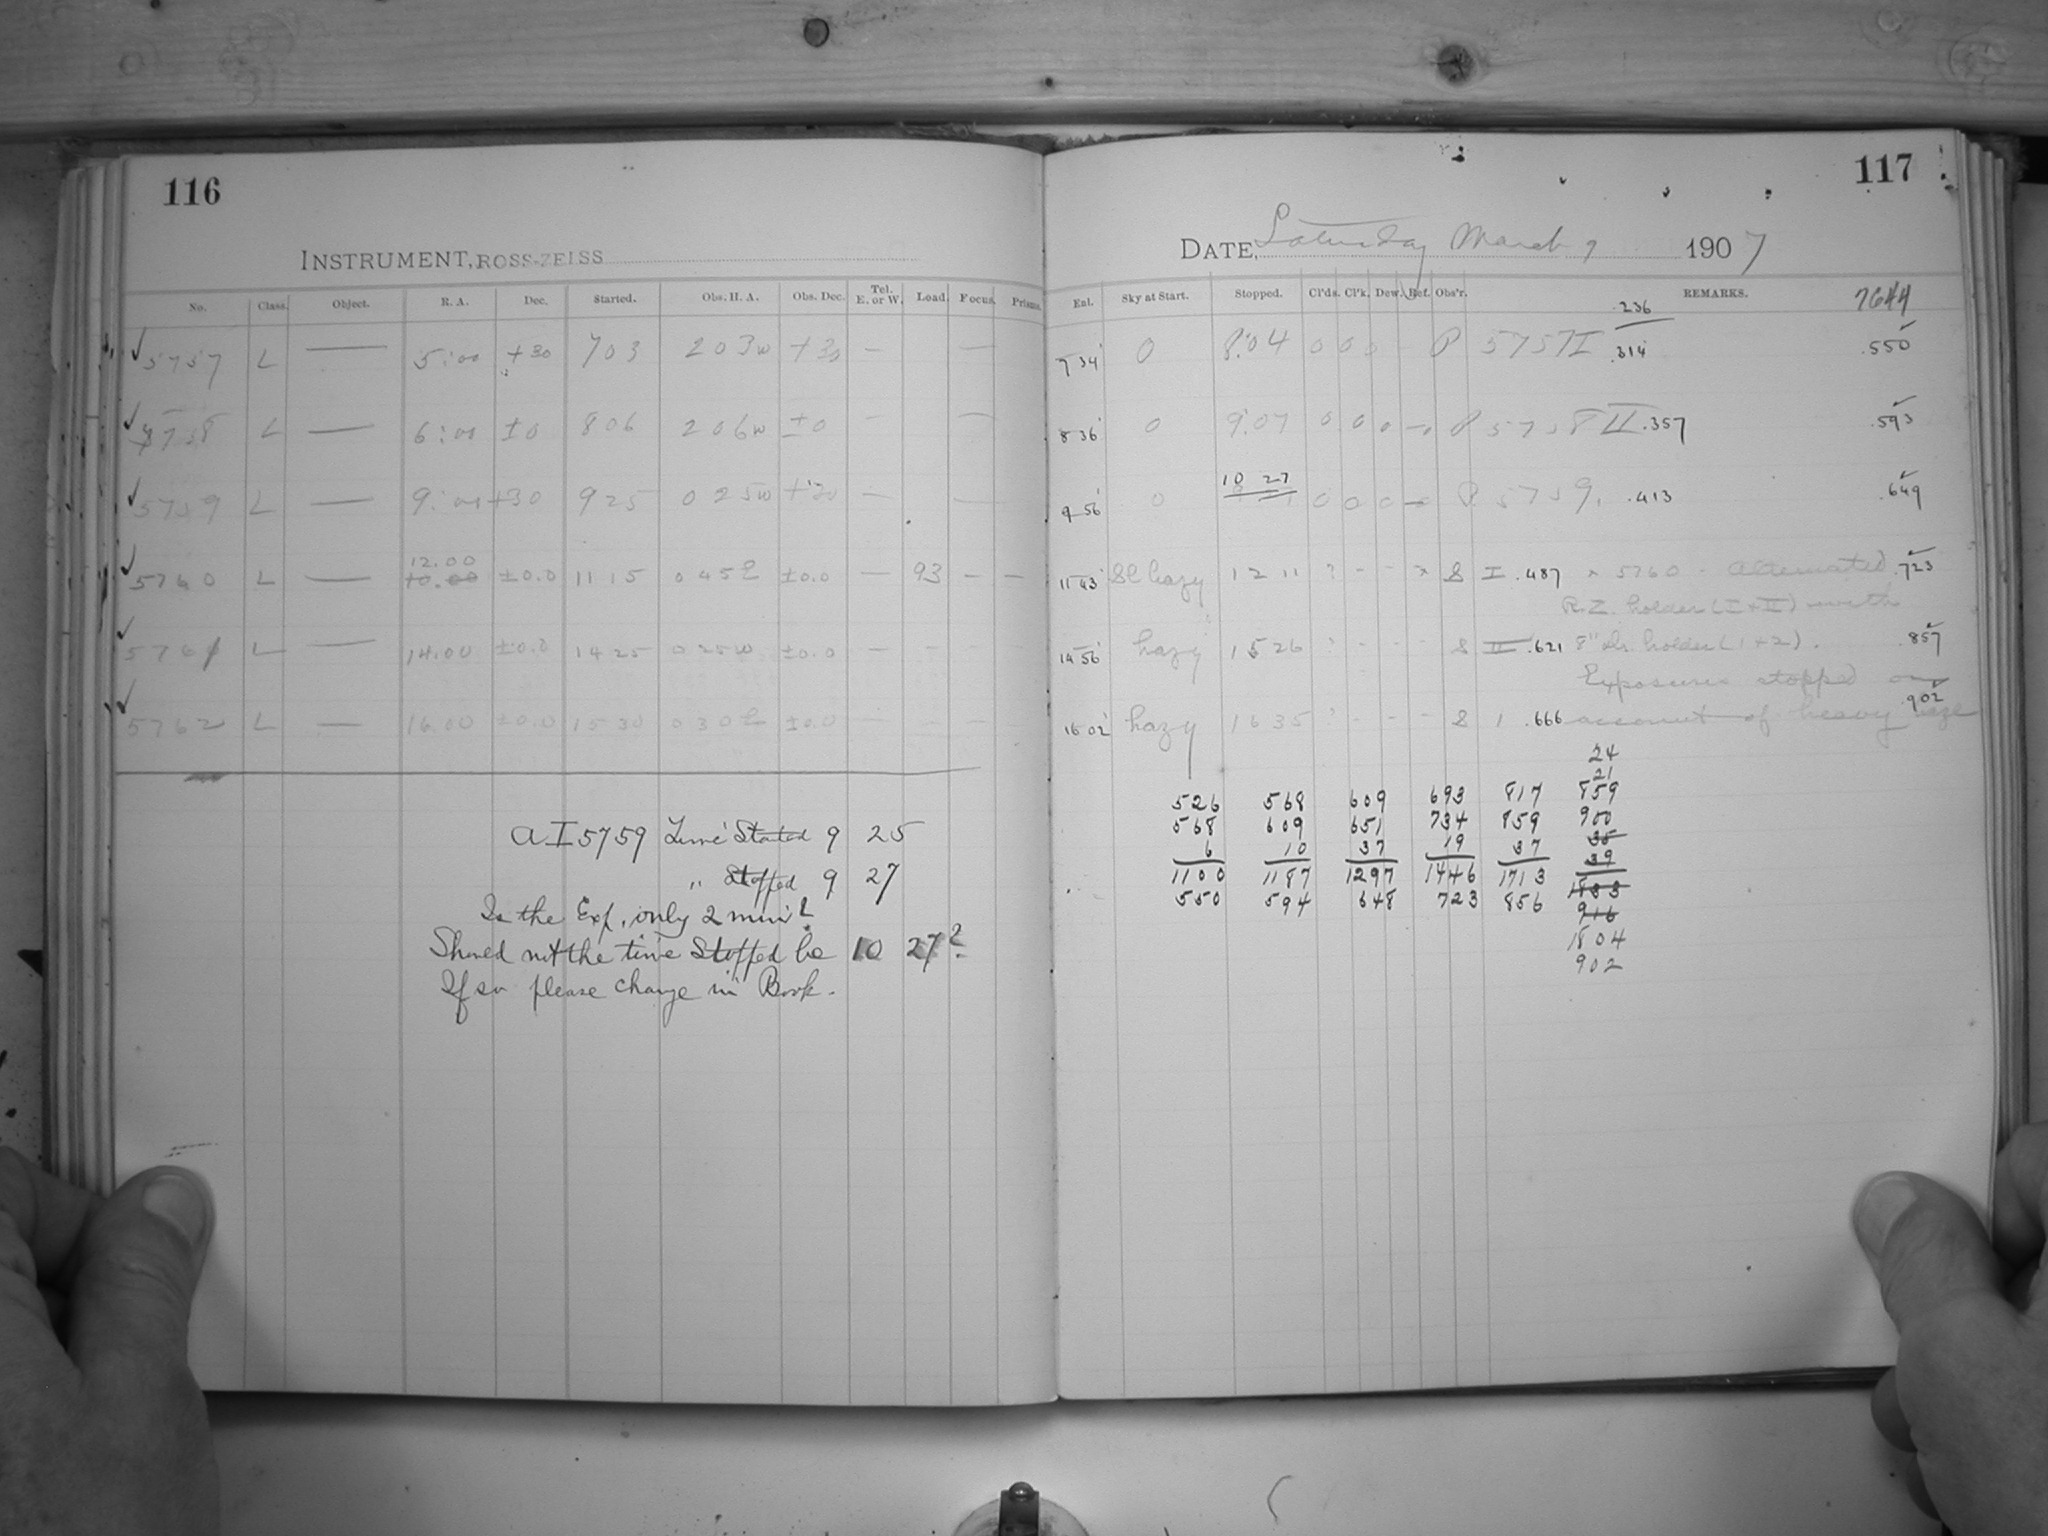 116
INSTRUMENT, ROSS-ZEISS
No. Class. Object. R. A. Dec. Started. Obs. H. A. Obs. Dec. Tel. E. or W. Load. Focus. Prisms.
5757 L — 5:00 +30 7 03 2 03w +30 — —
5758 L — 6:00 ±0 8 06 2 06w ±0 — —
5759 L — 9:00 +30 9 25 0 25w +30 — —
12.00
5760 L — 10.00 ±0.0 11 15 0 45E ±0.0 — 93 — —
5761 L — 14.00 ±0.0 14 25 0 25w ±0.0 — - - -
5762 L — 16.00 ±0.0 15 30 0 30E ±0.0 — - - -
AI 5759 Time Started 9 25
" Stopped 9 27
Is the Exp. only 2 min?
Should not the time Stopped be 10 27?
If so please change in Book.
117
DATE, Saturday March 9 1907
Enl. Sky at Start. Stopped. Cl'ds. Cl'k. Dew. Ref. Obs'r. REMARKS. 7644
.236
7 34 0 8:04 0 0 0 - P 5757 I .314 .550
8 36 0 9:07 0 0 0 — P 5758 II .357 .593
9 56 0 10 27 0 0 0 — P 5759. .413 .649
11 43 Sl hazy 12 11 ? - - × S I .487 × 5760 - alternated .723
R.Z. holder (I + II) with
14 56 hazy 15 26 ? - - - S II .621 8" Dr. holder (1+2). .857
Exposures stopped on
16 02 hazy 16 35 ? - - - S 1 .666 account of heavy haze .902
24
21
526 568 609 693 817 859
568 609 651 734 859 900
6 10 37 19 37 35
39
1100 1187 1297 1446 1713 1833
550 594 648 723 856 916
1804
902